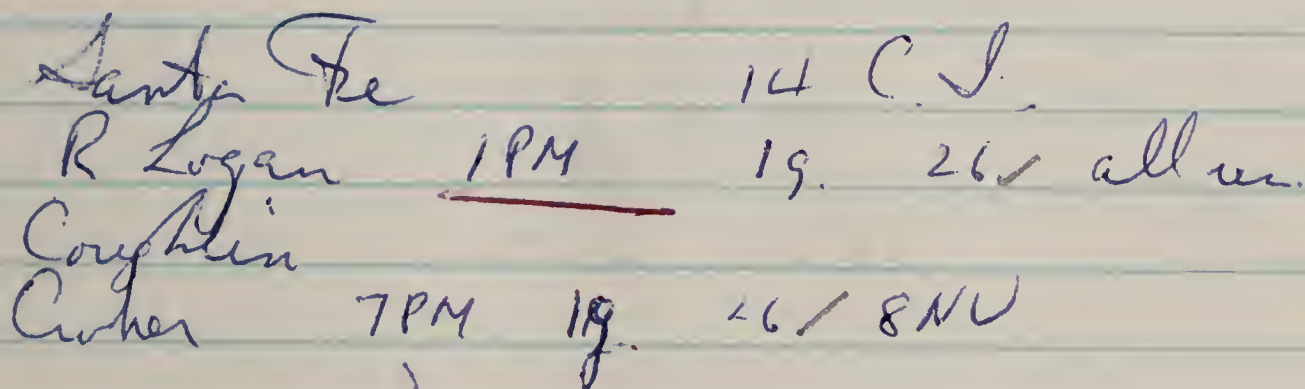 Santa Fe 14 C.I.
R Logan 1PM 19. 26/ all un.
Coughlin
7PM 19. 26/ 8NU